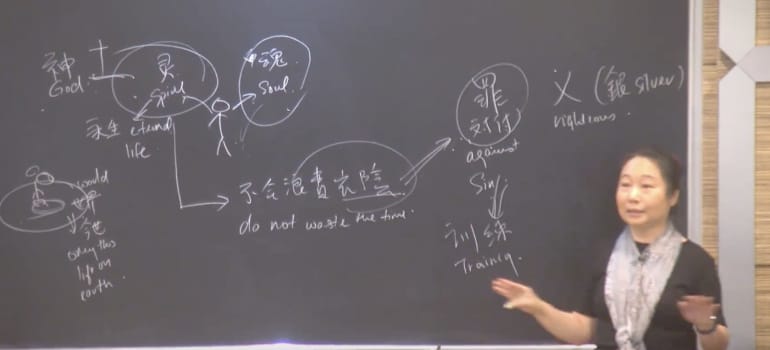 神
God
灵
spirit
永生 eternal
life.
魂
Soul
would
世界
今世
only this
life on
earth
不会浪费
do not waste the time.
罪
对付
against
Sin
训练
Training.
义 (銀 silver)
righteous.